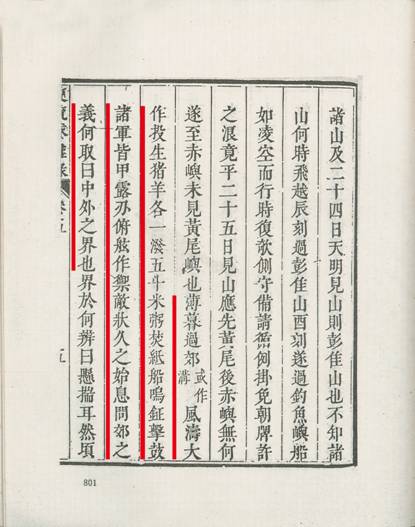 諸山及二十四日天明見山則彭佳山也不知諸
山何時飛越辰刻過彭佳山酉刻遂過釣魚嶼船
如凌空而行時復欹側守備請循例掛免朝牌許
之浪竟平二十五日見山應先黃尾後赤嶼無何
遂至赤嶼未見黃尾嶼也薄暮過郊或作溝風濤大
作投生猪羊各一潑五斗米粥焚紙船鳴鉦擊鼓
諸軍皆甲露刃俯舷作禦敵狀久之始息問郊之
義何取曰中外之界也界於何辨曰懸揣耳然頃
卷五
五
801